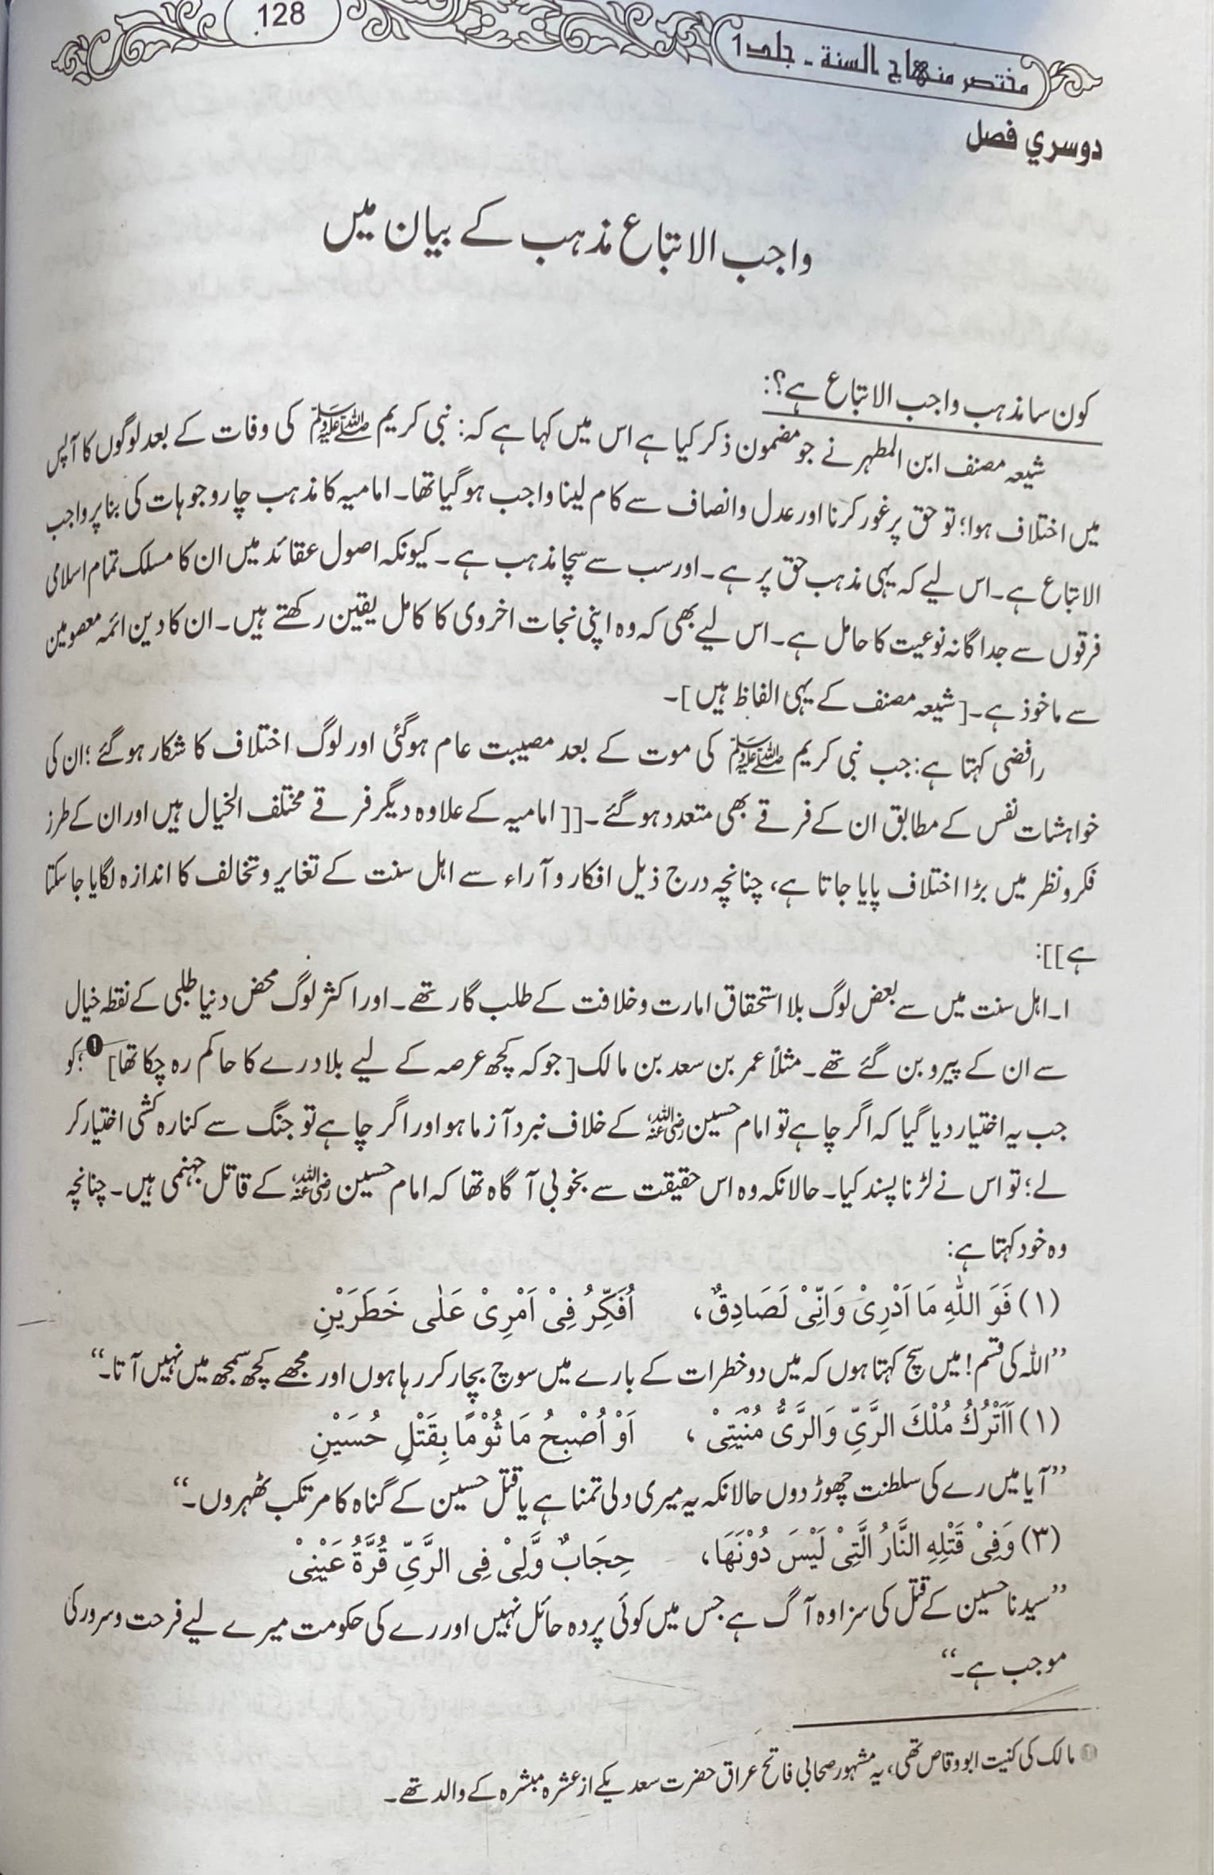 128
مختصر منهاج السنة ۔ جلد 1
دوسري فصل
واجب الاتباع مذہب کے بیان میں
کون سا مذہب واجب الاتباع ہے؟:
شیعہ مصنف ابن المطہر نے جو مضمون ذکر کیا ہے اس میں کہا ہے کہ: نبی کریم ﷺ کی وفات کے بعد لوگوں کا آپس
میں اختلاف ہوا؛ تو حق پر غور کرنا اور عدل و انصاف سے کام لینا واجب ہو گیا تھا۔ امامیہ کا مذہب چار وجوہات کی بنا پر واجب
الاتباع ہے۔ اس لیے کہ یہی مذہب حق پر ہے۔ اور سب سے سچا مذہب ہے۔ کیونکہ اصول عقائد میں ان کا مسلک تمام اسلامی
فرقوں سے جداگانہ نوعیت کا حامل ہے۔ اس لیے بھی کہ وہ اپنی نجات اخروی کا کامل یقین رکھتے ہیں۔ ان کا دین ائمہ معصومین
سے ماخوذ ہے۔ [شیعہ مصنف کے یہی الفاظ ہیں]۔
رافضی کہتا ہے: جب نبی کریم ﷺ کی موت کے بعد مصیبت عام ہوگئی اور لوگ اختلاف کا شکار ہوگئے؛ ان کی
خواہشات نفس کے مطابق ان کے فرقے بھی متعدد ہو گئے۔ [[ امامیہ کے علاوہ دیگر فرقے مختلف الخیال ہیں اور ان کے طرز
فکر و نظر میں بڑا اختلاف پایا جاتا ہے، چنانچہ درج ذیل افکار و آراء سے اہل سنت کے تغایر و تخالف کا اندازہ لگایا جا سکتا
ہے]]:
۱۔ اہل سنت میں سے بعض لوگ بلا استحقاق امارت و خلافت کے طلب گار تھے۔ اور اکثر لوگ محض دنیا طلبی کے نقطہ خیال
سے ان کے پیرو بن گئے تھے۔ مثلاً عمر بن سعد بن مالک [جو کہ کچھ عرصہ کے لیے بلاد رے کا حاکم رہ چکا تھا] ❶؛ کو
جب یہ اختیار دیا گیا کہ اگر چاہے تو امام حسین رضی اللہ عنہ کے خلاف نبرد آزما ہو اور اگر چاہے تو جنگ سے کنارہ کشی اختیار کر
لے؛ تو اس نے لڑنا پسند کیا۔ حالانکہ وہ اس حقیقت سے بخوبی آگاہ تھا کہ امام حسین رضی اللہ عنہ کے قاتل جہنمی ہیں۔ چنانچہ
وہ خود کہتا ہے:
(۱) فَوَ اللّٰهِ مَا اَدْرِیْ وَاِنِّیْ لَصَادِقٌ، اُفَكِّرُ فِیْ اَمْرِیْ عَلٰی خَطَرَيْنِ
’’اللہ کی قسم! میں سچ کہتا ہوں کہ میں دو خطرات کے بارے میں سوچ بچار کر رہا ہوں اور مجھے کچھ سمجھ میں نہیں آتا۔‘‘
(۱) اَاَتْرُكُ مُلْكَ الرَّیِّ وَالرَّیُّ مُنْيَتِیْ، اَوْ اُصْبِحُ مَا ثُوْمًا بِقَتْلِ حُسَيْنِ
’’آیا میں رے کی سلطنت چھوڑ دوں حالانکہ یہ میری دلی تمنا ہے یا قتل حسین کے گناہ کا مرتکب ٹھہروں۔‘‘
(۳) وَفِیْ قَتْلِهِ النَّارُ الَّتِیْ لَيْسَ دُوْنَهَا، حِجَابٌ وَّلِیْ فِی الرَّیِّ قُرَّةُ عَيْنِیْ
’’سیدنا حسین کے قتل کی سزا وہ آگ ہے جس میں کوئی پردہ حائل نہیں اور رے کی حکومت میرے لیے فرحت و سرور کی
موجب ہے۔‘‘
❶ مالک کی کنیت ابو وقاص تھی، یہ مشہور صحابی فاتح عراق حضرت سعد یکے از عشرہ مبشرہ کے والد تھے۔